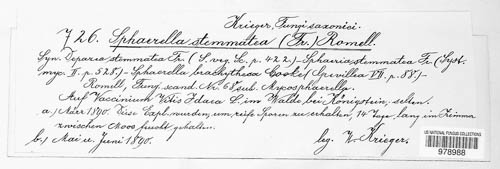 Krieger, Fungi saxonici.
726. Sphaerella stemmatea (Fr.) Romell.
Syn. Depazea stemmatea Fr. (S. veg. Sc. p. 422.) - Sphaeria stemmatea Fr. (Syst.
myc. II. p. 528.) - Sphaerella brachytheca Cooke (Grevillea VII. p. 88.) -
Romell, Fung. scand. Nr. 68 sub. Mycosphaerella.
Auf Vaccinium Vitis Idaea L. im Walde bei Königstein, selten.
a.) März 1890. Diese Expl. wurden, um reife Sporen zu erhalten, 14 Tage lang im Zimmer
zwischen Moos feucht gehalten.
b.) Mai u. Juni 1890. leg. W. Krieger.
US NATIONAL FUNGUS COLLECTIONS
978988